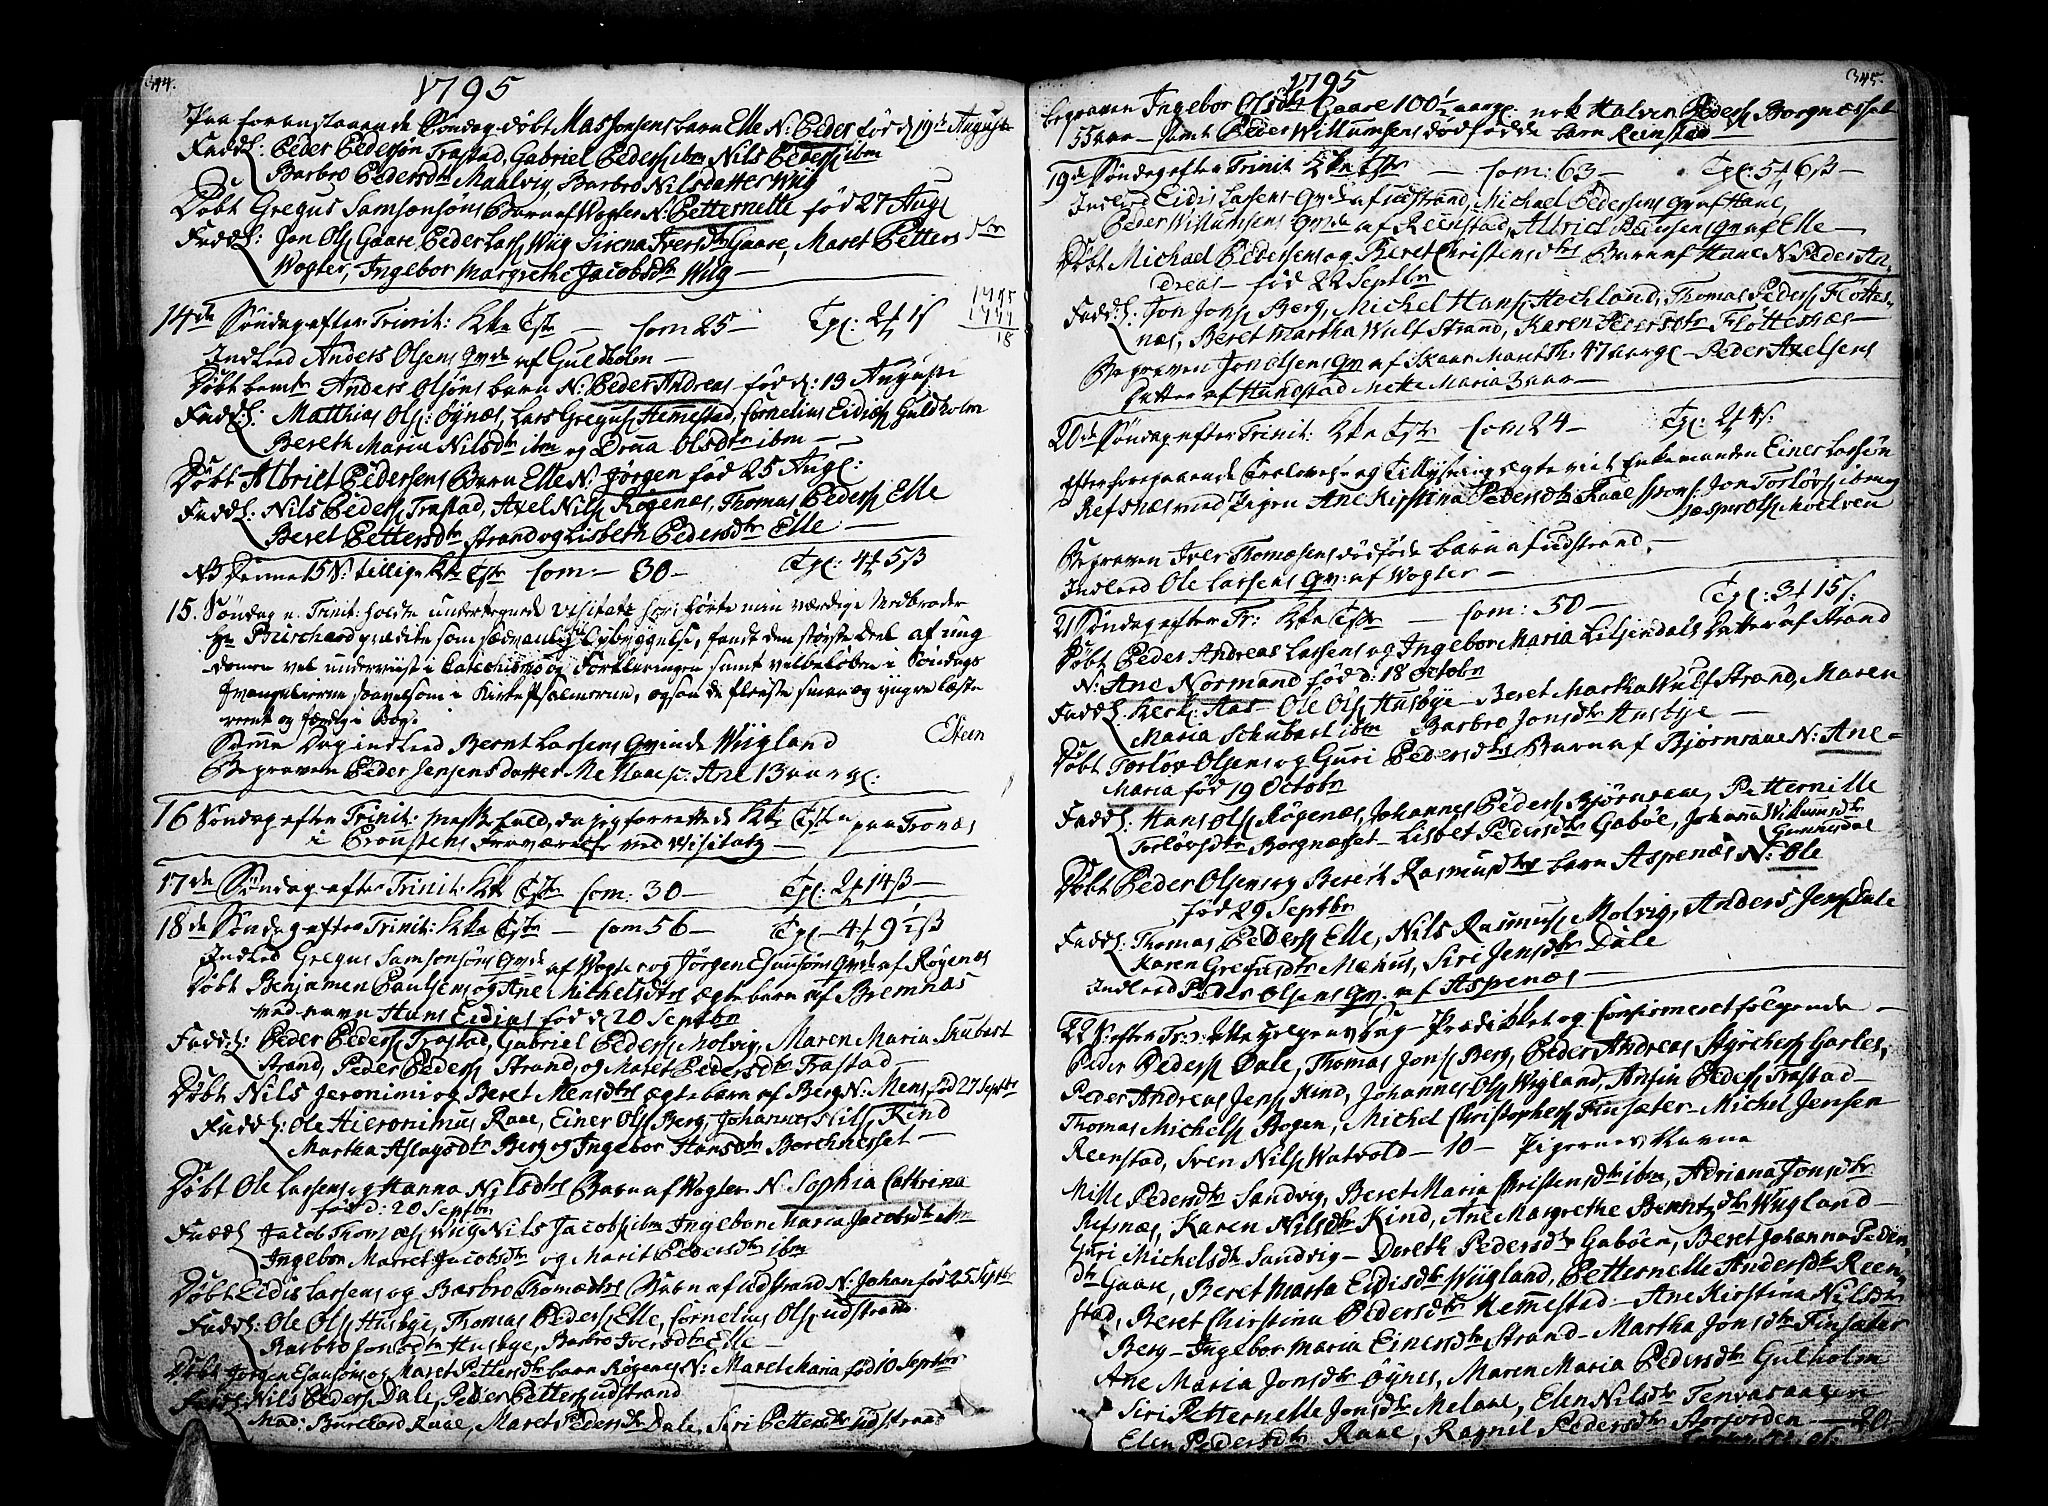 344.
1795
Paa foranstaaende Søndag døbt Mas Jonsens barn Elle N: Peder fød d 19de Augusti
Fadd: Peder Pedersøn Trastad, Gabriel Peders ibm Nils Peders ibm
Barbro Pedersdtr Maalvig, Barbro Nilsdatter Wiig
Døbt Gregus Samsonsøns Barn af Wogler N: Petternelle fød 27 Aug
Fadd: Jon Ols Gaare, Peder Lars Wiig Sirena Iversdtr Gaare, Maret Petters
Wogler, Ingebor Margrethe Jacobsdtr Wiig
14de Søndag efter Trinit: Kke Tste — Com 25 —
Indled Anders Olsens Qvde af Guldholm —
Døbt bemte Anders Olsøns barn N: Peder Andreas fød d: 13 Augusti
Fadd: Matthias Ols: Øynæs, Lars Gregus Hemestad, Cornelius Eidis Guldholm
Bereth Maria Nilsdtr ibm og Anna Olsdtr ibm —
Døbt Albrict Pedersens Barn Elle N: Jørgen fød 25 Aug:
Fadd: Nils Peders Trastad, Axel Nils Røgenæs, Thomas Peders Elle
Beret Pettersdtr Strand og Lisbeth Pedersdtr Elle —
NB Denne 15 N: tillige Kke Tste Com — 30 —
15. Søndag e. Trinit: holdte undertegnede Visitats her: førte min værdige Medbroder
Hr Burchard prædike som sædvanlig til Opbyggelse, fandt den største Deel af ung
domen vel underviist i Catechismo og Forklaringen samt velbeløben i Søndags
Evangelierne saavelsom i Kirke Psalmerne, ogsaa de fleeste smaa og yngre læste
reent og færdig i Bog.
Samme Dag indled Bernt Larsens Qvinde Wiigland
Begraven Peder Jensens datter Ane 13 aar gl:
16 Søndag efter Trinit: Messefald, da jeg forrettede Kke Tste paa Tronæs
i Provstens Fraværelse ved Visitatz —
17de Søndag efter Trinit: Kke Tste Com: 30 —
18de Søndag efter Trinit: Kke Tste — Com 56 —
Indled Gregus Samsonsøns Qvde af Wogler og Jørgen Esaisøns Qvde af Røgenæs
Døbt Benjamen Paulsens og Ane Michelsdtrs ægte barn af Bremnæs
ved navn Hans Eidius fød d 20 Septbr
Fadd: Peder Peders Trastad, Gabriel Peders Molvig, Maren Maria Shubart
Strand, Peder Peders Strand, og Maret Pedersdtr Trastad —
Døbt Nils Jeronimi og Beret Mensdtrs ægte barn af Berg N: Mens, fød 27 Septbr
Fadd: Ole Hieronimus Raae, Einer Ols Berg, Johannes Nils Kind
Martha Aslagsdtr Berg og Ingebor Hansdtr Borchnesset —
Døbt Ole Larsens og Hanna Nilsdtrs Barn af Wogler N. Sophia Cathrina
fød d: 20 Septbr
Fadd Jacob Thomæs Wiig Nils Jacobs ibm Ingebor Maria Jacobsdtr ibm
Ingebor Marret Jacobsdtr og Marit Pedersdtr ibm
Døbt Eidis Larsens og Barbro Thomædtrs Barn af Udstrand N: Johan fød 25 Septbr
Fadd: Ole Ols Husbye, Thomas Peders Elle, Cornelius Ols udstrand
Barbro Jonsdtr Husbye, Barbro Iversdtr Elle —
Døbt Jørgen Esaisøns og Maret Pettersdtr barn Røgenes N: Maret Maria fød 10 Septbr
Fadd: Nils Peders Dale, Peder Petters udstrand
Mad: Burchard Raae, Maret Pedersdtr Dale, Siri Pettersdtr udstrand
345.
1795
begraven Ingebor Olsdtr Gaare 100 aar gl. nok Halven Peders Borgnesset
55 aar — samt Peder Willumsens dødfødde barn Reenstad —
19de Søndag efter Trinit Kke Tste — Com: 63 —
Indled Eidis Lasens Qvde af udstrand, Michael Pedersens Qv af Haae,
Peder Willumsens Qvde af Reenstad, Albrict Pedersens Qv af Elle —
Døbt Michael Pedersens og Beret Christensdtrs Barn af Haae N. Peder An-
dreas — fød 22 Septbr
Fadd: Jon Jons Berg, Michel Hans Hochland, Thomas Peders Flottes-
næs, Beret Martha Wulf Strand, Karen Pedersdtr Flottesnæs —
Begraven Jon Olsens Qv af Skaar Maret Th: 47 aar gl — Peder Axelsens
datter af Hundstad Mette Maria 3 aar —
20de Søndag efter Trinit: Kke Tste Com 24 —
efter foregaaende Trolovelse og Tillysning ægteviet Enkemanden Einer Larsøn
Refsnæs med Pigen Ane Kirstina Pedersdtr Raae Spons: Jon Torløvs ibm og
Jasper Ols Moelven
Begraven Iver Thomæsens dødføde barn af udstrand. —
Indled Ole Larsens Qv: af Wogler —
21 Søndag efter Tr: Kke Tste — Com: 50 —
Døbt Peder Andreas Larsens og Ingebor Maria Liljendals datter af Strand
N: Ane Normand fød d: 18 Octobr
Fadd: Aas Ole Ols Husbye — Beret Martha Wulf Strand, Maren
Maria Schubart ibm Barbro Jonsdtr Husbye —
Døbt Torløv Olsens og Guri Pedersdtrs Barn af Bjørnraae N: Ane-
Maria fød 19 Octobr
Fadd: Hans Ols Røgenæs, Johannes Peders Bjørnraae, Petternille
Torløvsdtr Borgnesset — Lisbet Pedersdtr Gabøe, Johanna Willumsdtr
Døbt Peder Olsens og Bereth Rasmusdtrs barn Aspenæs N: Ole
fød 29 Septbr
Fadd: Thomas Peders Elle, Nils Rasmus Molvig, Anders Jens Dale
Karen Gregusdtr Mæhus, Siri Jensdtr Dale
Indled Peder Olsens Qv. af Aspenæs —
22 S: efter Tr: Prædiket og Confirmeret følgende —
Peder Peders Dale, Thomas Jons Berg, Peder Andreas Styrchers Garles,
Peder Andreas Jens Kind, Johannes Ols Wigland, Ansin Peders Trastad —
Thomas Michels Bogen, Michel Christophers Finsæter — Michel Jensen
Reenstad, Sven Nils Watvold — 10 — Pigernes Navne
Mille Pedersdtr Sandvig, Beret Maria Christensdtr ibm, Adriana Jonsdtr
Refsnæs, Karen Nilsdtr Kind, Ane Margrethe Berntsdtr Wiigland —
Guri Michelsdtr Sandvig — Dorethe Pedersdtr Gabøen, Beret Johanna Peder
dtr Gaare, Beret Marta Eidisdtr Wiigland, Petternelle Andersdtr Reen
stad, Beret Christina Pedersdtr Hemmestad — Ane Kirstina Nilsdtr
Berg — Ingebor Maria Einersdtr Strand — Martha Jonsdtr Finsæter
Ane Maria Jonsdtr Øynes, Maren Maria Pedersdtr Gulholm
Siri Petternelle Jonsdtr Melaae, Elen Nilsdtr Tenvasaasen
Elen Pedersdtr Raae, Ragnil Pedersdtr Storjorden — 20